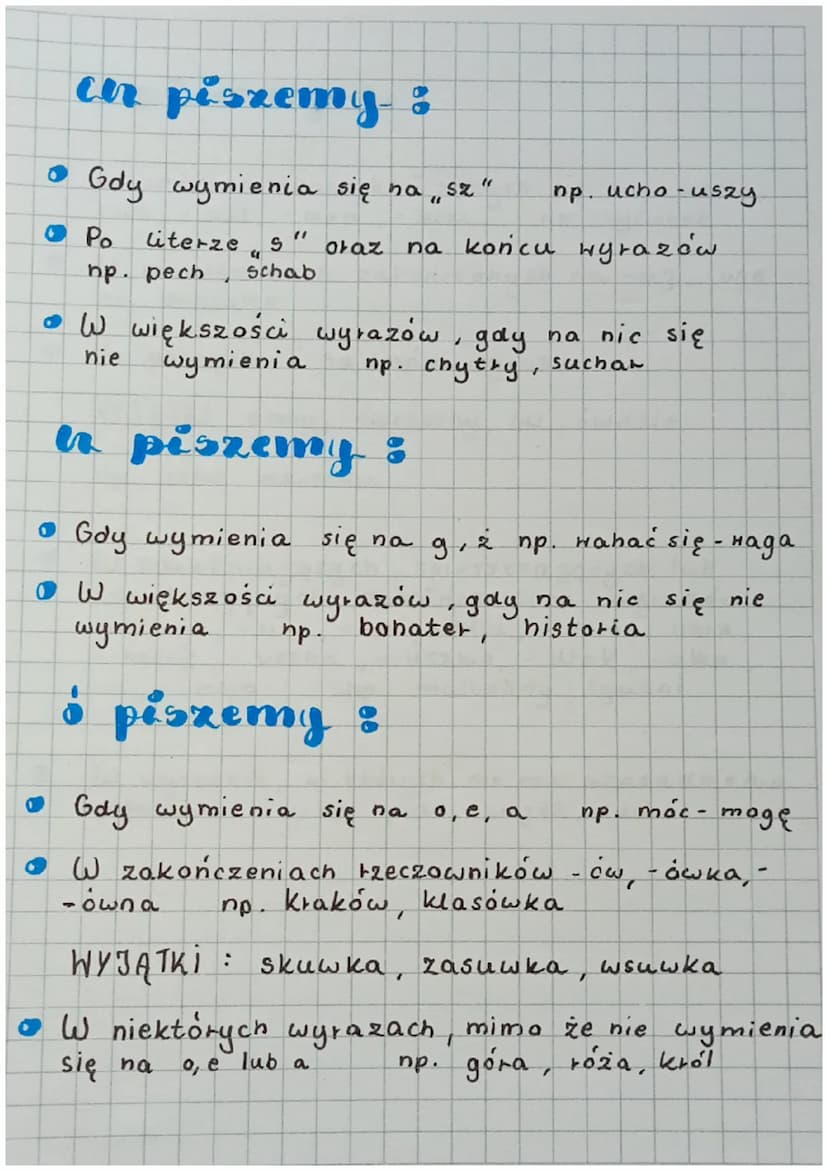 ch piszemy :
Gdy wymienia się na „sz" np. ucho - uszy
Po literze „s" oraz na końcu wyrazów
np. pech , schab
W większości wyrazów , gdy na nic się
nie wymienia np. chytry , suchar
h piszemy :
Gdy wymienia się na g , ż np. wahać się - waga
W większości wyrazów , gdy na nic się nie
wymienia np. bohater , historia
ó piszemy :
Gdy wymienia się na o, e, a np. móc - mogę
W zakończeniach rzeczowników - ów, - ówka, -
- ówna np. Kraków, klasówka
WYJĄTKI : skuwka , zasuwka , wsuwka
W niektórych wyrazach , mimo że nie wymienia
się na o, e lub a np. góra , róża , król